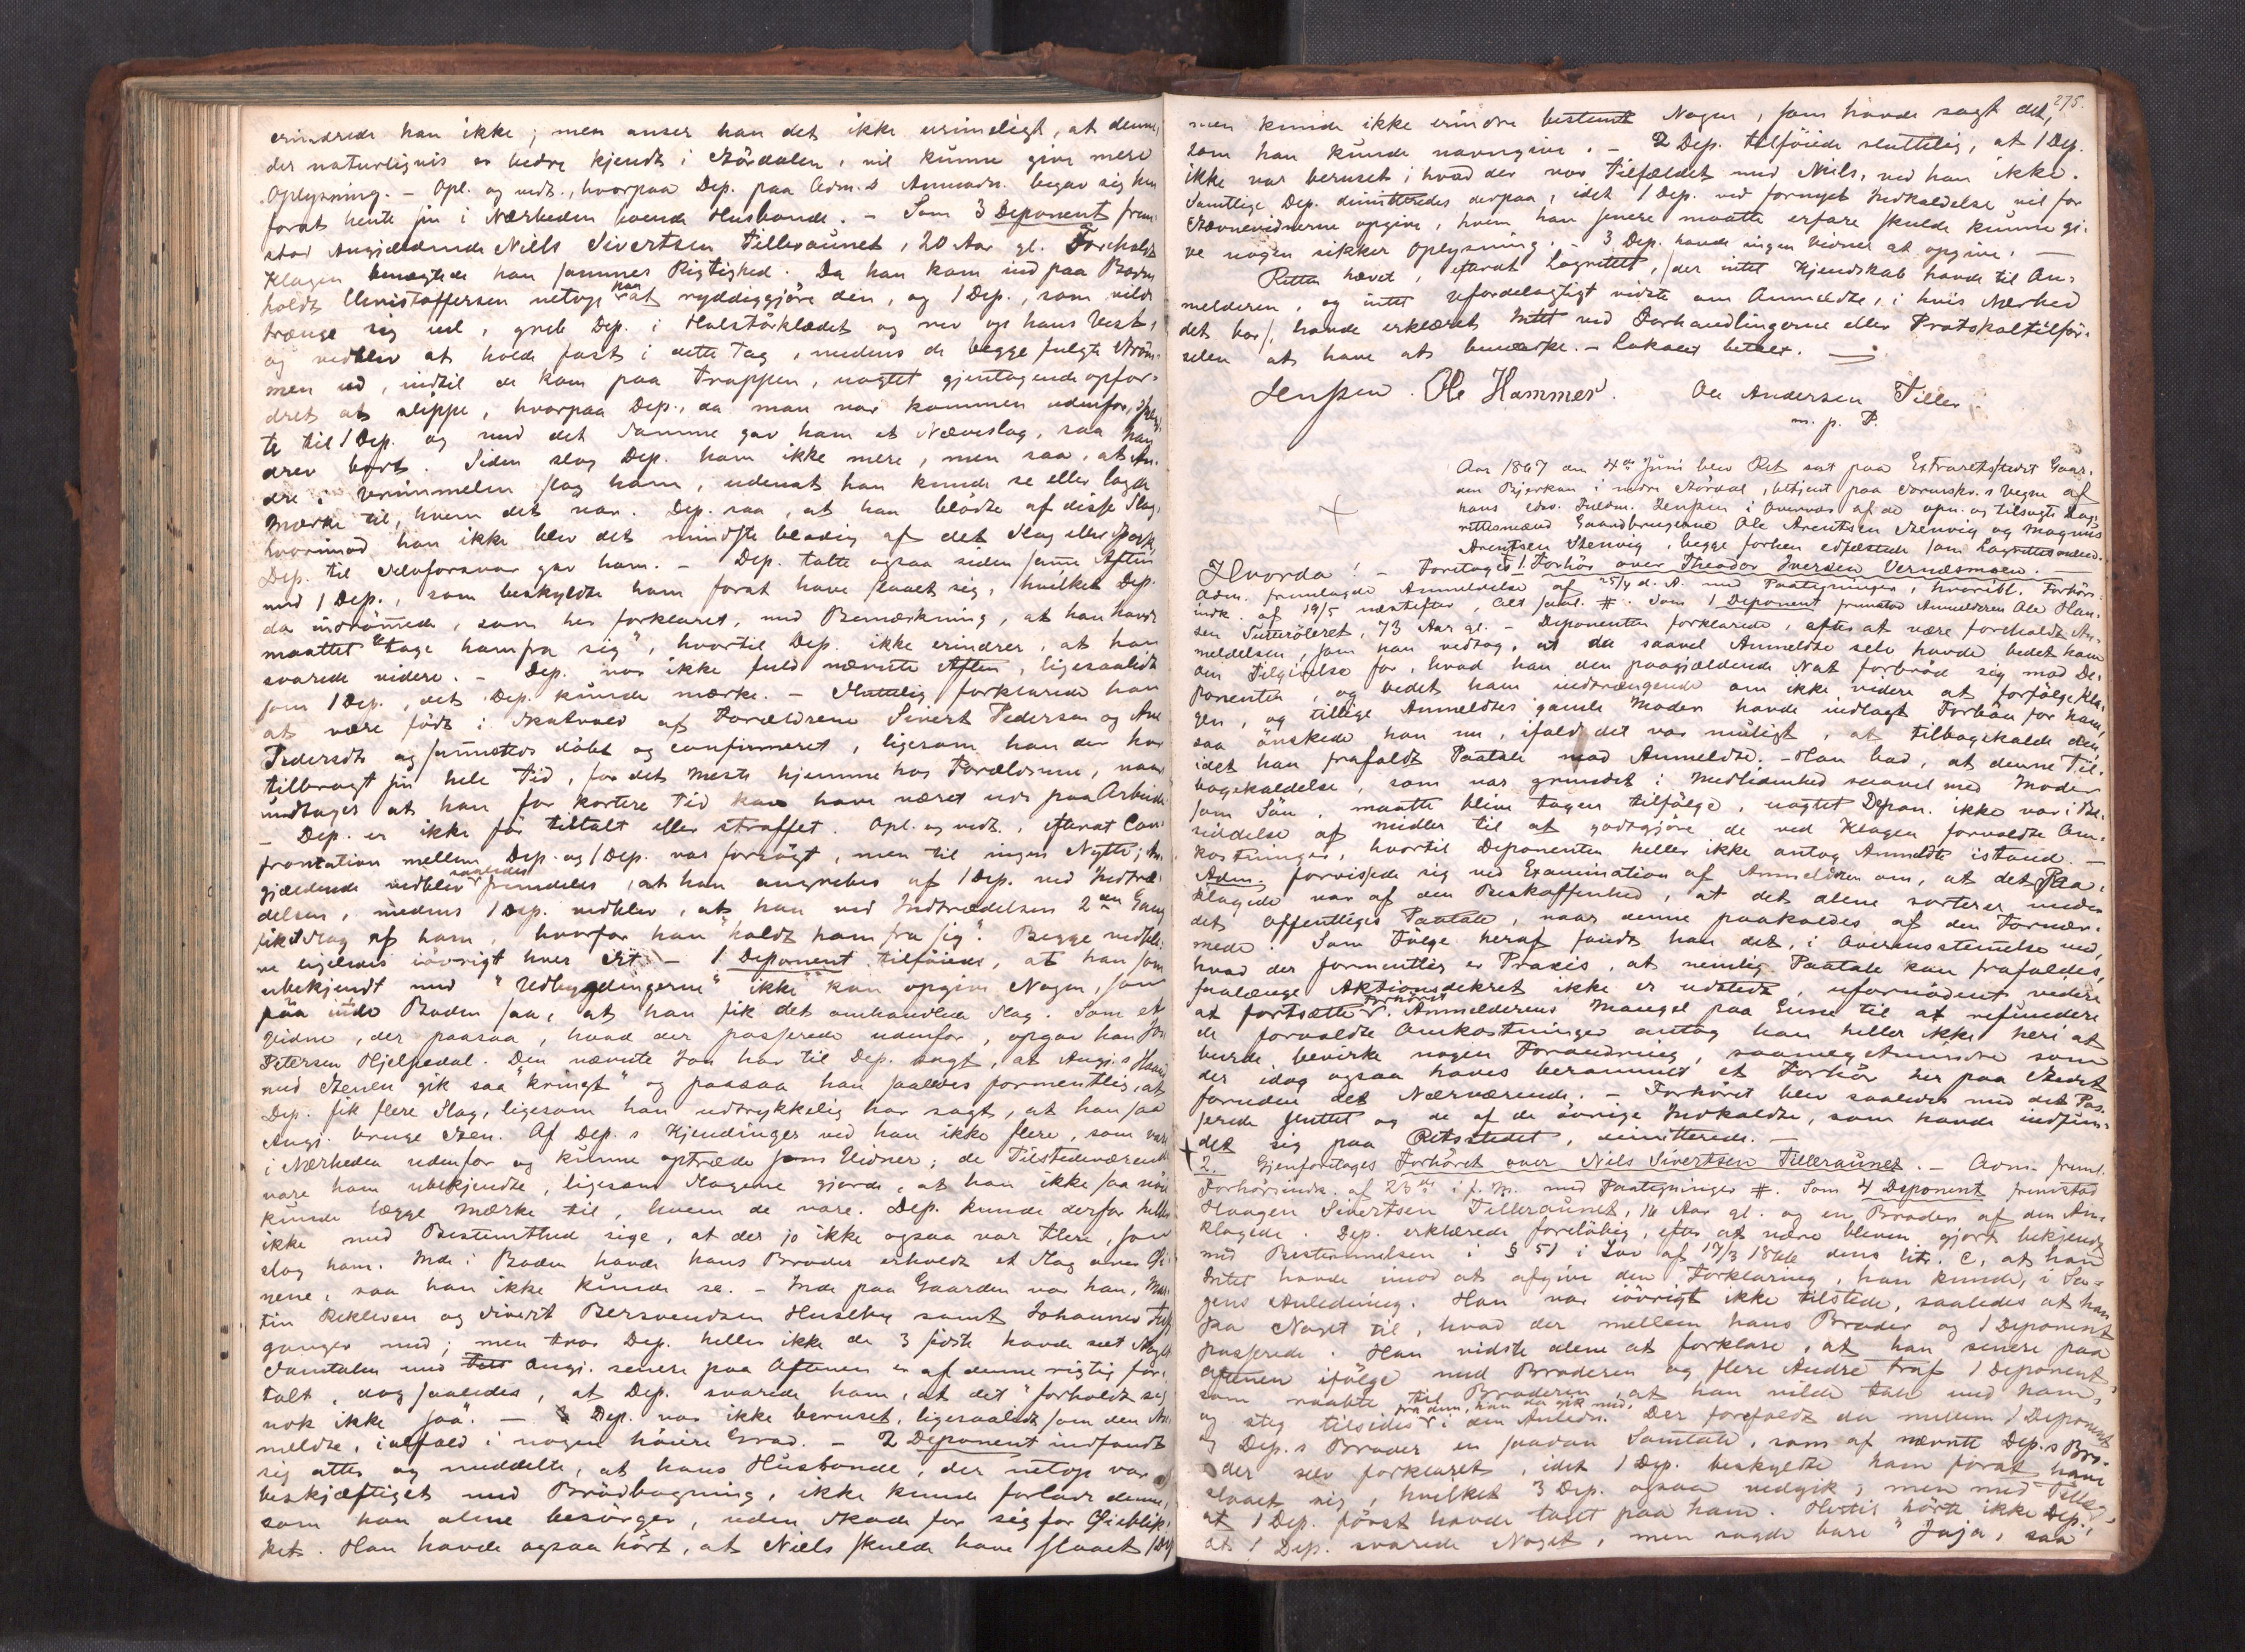 erindrede han ikke; men anser han det ikke urimeligt, at denne,
der naturligvis er bedre kjendt i Stördalen, vil kunne give mere
Oplysning. – Opl. og vedt., hvorpaa Dep. paa Adm.s Anmodn. begav sig hen
forat hente sin i Nærheden boende Husbonde. – Som 3 Deponent frem-
stod Angjældende Niels Sivertsen Tilleraunet, 20 Aar gl. Foreholdt
Klagen benægtede han sammes Rigtighed. Da han kom ind paa Boden
holdt Christoffersen netop paa at ryddiggjöre den, og 1 Dep., som vilde
trænge sig ud, greb Dep. i Halstörklædet og rev op hans Vest,
og vedblev at holde fast i dette Tag, medens de begge fulgte Ström-
men ud, indtil de kom paa Trappen, uagtet gjentagende opfor-
dret at slippe, hvorpaa Dep., da man var kommen udenfor,
te til 1 Dep. og med det samme gav ham et Næveslag, saa han
drev bort. Siden slog Dep. ham ikke mere, men saa, at An-
dre i Vrimmelen slog ham, udenat han kunde se eller lagde
Mærke til, hvem det var. Dep. saa, at han blödte af disse Slag,
hvorimod han ikke blev det mindste blodig af det Slag eller
Dep. til Selvforsvar gav ham. – Dep. talte ogsaa siden samme Aften
med 1 Dep., som beskyldte ham forat have slaaet sig, hvilket Dep.
da indrömmede, som her forklaret, med Bemærkning, at han havde
maattet "tage ham fra sig", hvortil Dep. ikke erindrer, at han
svarede videre. – Dep. var ikke fuld nævnte Aften, ligesaalidt
som 1 Dep., det Dep. kunde mærke. – Sluttelig forklarede han
at være födt i Skatval af Forældrene Sivert Pedersen og Ane
Pedersdtr og sammesteds döbt og confirmeret, ligesom han der har
tilbragt sin hele Tid, for det meste hjemme hos Forældrene, naar
undtages at han for kortere Tid kan have været ude paa Arbeide
– Dep. er ikke för tiltalt eller straffet. Opl. og vedt., efterat Con-
frontation mellem Dep. og 1 Dep. var forsögt, men til ingen Nytte; An-
gjældende vedblev saaledes fremdeles, at han angrebes af 1 Dep. ved Indtræ-
delsen, medens 1 Dep. vedblev, at han ved Indtrædelsen 2den Gang
fik Slag af ham, hvorfor han "holdt ham fra sig". Begge vedblev
ligeledes iövrigt hver Sit – 1 Deponent tilföiede, at han som
ubekjendt med "Udbygdingerne" ikke kan opgive Nogen, som
paa inde Boden saa, at han fik det omhandlede Slag. Som et
Vidne, der paasaa, hvad der passerede udenfor, opgav han Jon
Petersen Hjelpedal. Den nævnte Jon har til Dep. sagt, at Angj.s Haand
med Stenen gik saa "kringt" og paasaa han saaledes formentlig, at
Dep. fik flere Slag, ligesom han udtrykkelig har sagt, at han saa
Angj. bruge Sten. Af Dep.s Kjendinger ved han ikke flere, som vare
i Nærheden udenfor og kunne optræde som Vidner; de Tilstedeværende
vare ham ubekjendte, ligesom Slagene gjorde, at han ikke saa nöie
kunde lægge Mærke til, hvem de vare. Dep. kunde derfor heller
ikke med Bestemthed sige, at der jo ikke ogsaa var Flere, som
slog ham. Inde i Boden havde hans Broder erholdt et Slag over Öi-
nene, saa han ikke kunde se. – Inde paa Gaarden var han, Mar-
tin Rekleven og Sivert Bersvendsen Husebye samt Johannes
ganger med; men tror Dep. heller ikke de 3 förste havde seet Noget
Samtalen med Angj. senere paa Aftenen er af denne rigtig for-
talt, dog saaledes, at Dep. svarede ham, at det "forholdt sig
nok ikke saa". – Dep. var ikke beruset, ligesaalidt som den An-
meldte, ialfald i nogen höiere Grad. – 2 Deponent indfandt
sig atter og meddelte, at hans Husbonde, der netop var
beskjæftiget med Brödbagning, ikke kunde forlade denne,
som han alene besörger, uden Skade for sig for Öieblik-
ket. Han havde ogsaa hört, at Niels skulde have slaaet 1 Dep
275.
men kunde ikke erindre bestemt Nogen, som havde sagt det,
som han kunde navngive. – 2 Dep. tilföiede sluttelig, at 1 Dep.
ikke var beruset; hvad der var Tilfældet med Niels, ved han ikke.
Samtlige Dep. dimitteredes derpaa, idet 1 Dep. ved fornyet Indkaldelse vil for
Stævnevidnerne opgive, hvem han senere maatte erfare skulde kunne gi-
ve nogen sikker Oplysning. – 3 Dep. havde ingen Vidner at opgive. –
Retten hævet, efterat Lagrettet, (der intet Kjendskab havde til An-
melderen, og intet ufordelagtigt vidste om Anmeldte, i hvis Nærhed
det bor), havde erklæret Intet ved Forhandlingerne eller Protokoltilför-
selen at have at bemærke. – Lokalet betalt. –
Jenssen. Ole Hammer. Ole Andersen Tiller
m. p. P.
Aar 1867 den 4de Juni blev Ret sat paa Extraretsstedet Gaar-
den Bjerkan i nedre Stördal, betjent paa Sorenskr.s Vegne af
hans edsv. Fuldm. Jenssen i Overvær af de opn. og tilsagte Lag-
rettesmænd Gaardbrugerne Ole Arentsen Stenvig og Magnus
Arentsen Stenvig, begge forhen edfæstede som Lagrettesmænd.
Hvorda! – Foretoges 1. Forhör over Theodor Iversen Vernæsmoen. –
Adm. fremlagde Anmeldelse af 25/4 d. A. med Paategninger, hvoribl. Forhörs-
indk. af 19/5 næstefter, Alt saal. #. Som 1 Deponent fremstod Anmelderen Ole Han-
sen Sutteröleret, 73 Aar gl. – Deponenten forklarede, efter at være foreholdt An-
meldelsen, som han vedtog, at da saavel Anmeldte selv havde bedet ham
om Tilgivelse for, hvad han den paagjældende Nat forbröd sig mod De-
ponenten, og bedet ham indtrængende om ikke videre at forfölge Kla-
gen, og tillige Anmeldtes gamle Moder havde indlagt Forbön for ham,
saa önskede han nu, ifald det var muligt, at tilbagekalde den
idet han frafaldt Paatale mod Anmeldte. – Han bad, at denne Til-
bagekaldelse, som var grundet i Medlidenhed saavel med Moder
som Sön, maatte blive tagen tilfölge, uagtet Depon. ikke var i Be-
siddelse af Midler til at godtgjöre de ved Klagen forvoldte Om-
kostninger, hvortil Deponenten heller ikke antog Anmeldte istand. –
Adm. forvissede sig ved Examination af Anmelderen om, at det Paa-
klagede var af den Beskaffenhed, at det alene sorterer under
det Offentliges Paatale, naar denne paakaldes af den Fornær-
mede. Som Fölge heraf fandt han det, i Overensstemmelse med,
hvad der formentlig er Praxis, at nemlig Paatale kan frafaldes,
saalænge Aktionsdekret ikke er udstedt, ufornödent videre
at fortsætte Forhöret. Anmelderens Mangel paa Evne til at refundere
de forvoldte Omkostninger antog han heller ikke heri at
burde bevirke nogen Forandring, saameget mindre som
der idag ogsaa haves berammet et Forhör her paa Stedet
foruden det Nærværende. – Forhöret blev saaledes med det Pas-
serede sluttet og de af de övrige Indkaldte, som havde indfun-
det sig paa Retsstedet, dimitterede. –
2. Gjenforetoges Forhöret over Niels Sivertsen Tilleraunet. – Adm. freml.
Forhörsindk. af 28de i f. M. med Paategninger #. Som 4 Deponent fremstod
Haagen Sivertsen Tilleraunet, 16 Aar gl. og en Broder af den An-
klagede. Dep. erklærede foreløbig, efter at være bleven gjort bekjendt
med Bestemmelsen i § 51 i Lov af 17/3 1866 dens litr. C, at han
Intet havde imod at afgive den Forklaring, han kunde, i Sa-
gens Anledning. Han var iövrigt ikke tilstede, saaledes at han
saa Noget til, hvad der mellem hans Broder og 1 Deponent
passerede. Han vidste alene at forklare, at han senere paa
Aftenen ifölge med Broderen og flere Andre traf 1 Deponent,
som raabte til Broderen, at han vilde tale med ham,
og steg tilsides fra dem, han da gik med, i den Anledn. Der forefaldt da mellem 1 Deponent
og Dep.s Broder en saadan Samtale, som af nævnte Dep.s Bro-
der selv forklaret, idet 1 Dep. beskyldte ham forat have
slaaet sig, hvilket 3 Dep. ogsaa vedgik; men med Tillæg
at 1 Dep. först havde taget paa ham. Hertil hörte ikke Dep.,
at 1 Dep. svarede Noget, men sagde bare "Jaja, saa